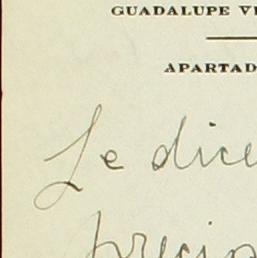 GUADALUPE VI
APARTAD
Le dice
precio